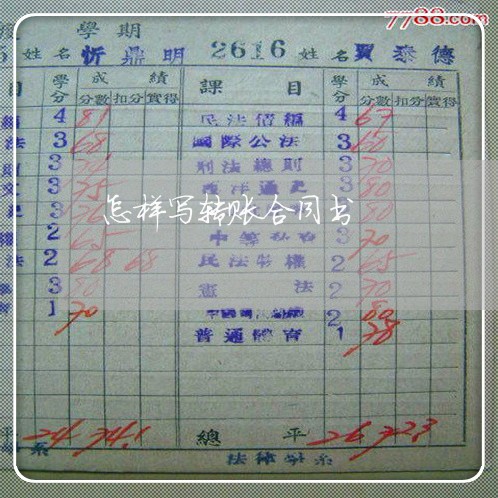 7788.com
學期
姓名 忻鼎明 2616 姓名 賈泰德
目 學分 成績 課目 學分 成績
分數 扣分 實得 分數 扣分 實得
4 81 民法債編 4 67
法 3 68 國際公法 3 60
3 刑法總則 3 70
3 75 3 80
怎样写转账合同书
2 65 3 70
法 2 68 68 民法物權 2 65
3 80 憲法 2 70
1 70 2 80
普通體育 1 78
24 74.1 總平 26 72.3
系 法律學系